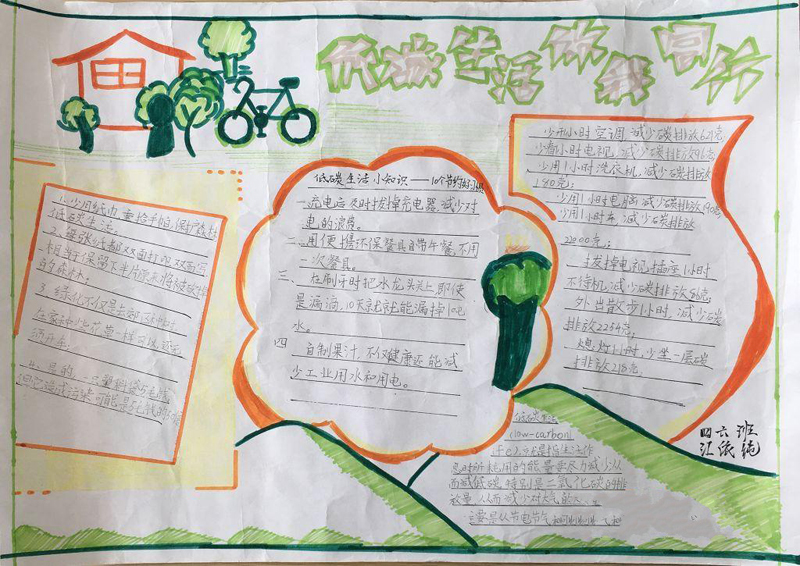 低碳生活你我同行
1.少用纸巾,重拾手帕,保护森林
低碳生活。
2.每张纸都双面打印,双面写
相当于保留下半片原本将被砍掉
的森林。
3.绿化不仅是去郊区种树,
在家种些花草一样可以,还无
须开车。
4.
低碳生活小知识——10个节约好习惯
一、充电后及时拔掉充电器,减少对
电的浪费。
二、用便携环保餐具自带午餐,不用
一次餐具。
三、在刷牙时把水龙头关上,即使
是漏滴,10天就能漏掉
水。
四 自制果汁,不仅健康还能减
少工业用水和用电。
少开1小时空调,减少碳排放621克,
少看1小时电视,减少碳排放96克
少用1小时洗衣机,减少碳排放
180克;
少用1小时电脑,减少碳排放190克,
少用1小时车,减少碳排放
22000克;
拔掉电视插座1小时
不待机,减少碳排放
外出散步1小时,减少碳
排放2254克;
熄灯1小时,少
排放218克
低碳生活
(low-carbon)
是指生活作
息时所耗用的能量要尽力减少,从
而减低碳,特别是二氧化碳的排
放量,从而减少对大气的
主要是从节电节气和
四六班
江依纯